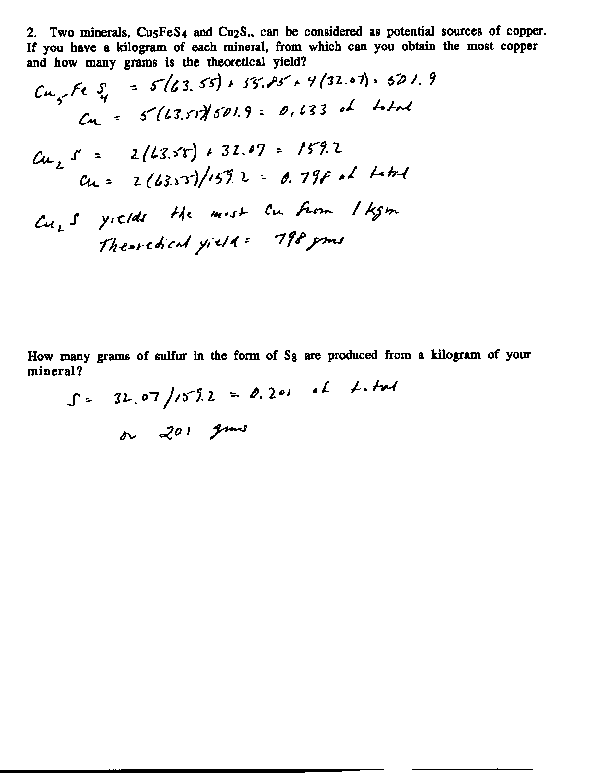 2. Two minerals, Cu5FeS4 and Cu2S,, can be considered as potential sources of copper.
If you have a kilogram of each mineral, from which can you obtain the most copper
and how many grams is the theoretical yield?
Cu5FeS4 = 5(63.55) + 55.85 + 4(32.07) = 501.9
Cu = 5(63.55)/501.9 = 0.633 of total
Cu2S = 2(63.55) + 32.07 = 159.2
Cu = 2(63.55)/159.2 = 0.798 of total
Cu2S yields the most Cu from 1 kgm
Theoretical yield = 798 gms
How many grams of sulfur in the form of S8 are produced from a kilogram of your
mineral?
S = 32.07/159.2 = 0.201 of total
or 201 gms